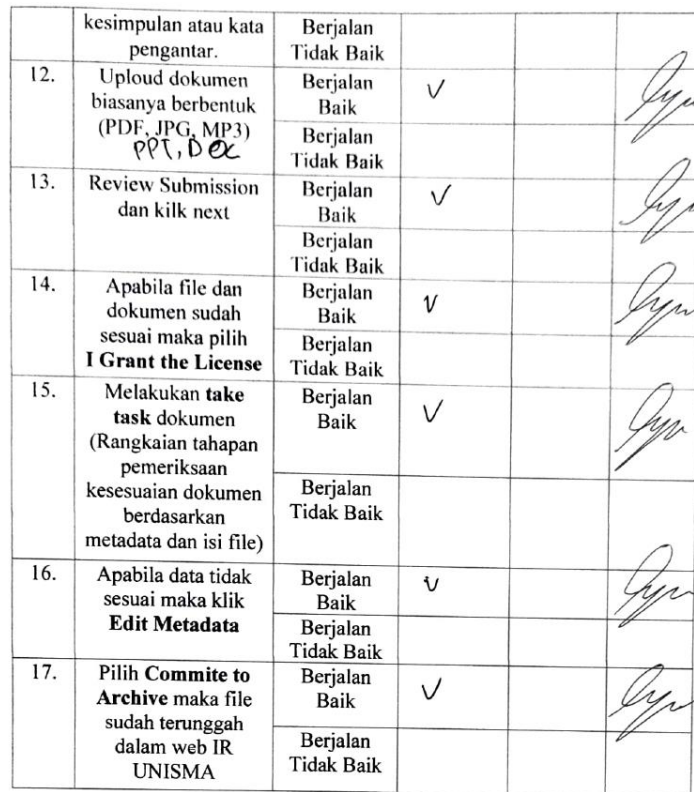 kesimpulan atau kata
pengantar.
Berjalan
Tidak Baik
12.
Uploud dokumen
biasanya berbentuk
(PDF, JPG, MP3)
PPT, DOC
Berjalan
Baik
V
Berjalan
Tidak Baik
13.
Review Submission
dan kilk next
Berjalan
Baik
V
Berjalan
Tidak Baik
14.
Apabila file dan
dokumen sudah
sesuai maka pilih
I Grant the License
Berjalan
Baik
V
Berjalan
Tidak Baik
15.
Melakukan take
task dokumen
(Rangkaian tahapan
pemeriksaan
kesesuaian dokumen
berdasarkan
metadata dan isi file)
Berjalan
Baik
V
Berjalan
Tidak Baik
16.
Apabila data tidak
sesuai maka klik
Edit Metadata
Berjalan
Baik
V
Berjalan
Tidak Baik
17.
Pilih Commite to
Archive maka file
sudah terunggah
dalam web IR
UNISMA
Berjalan
Baik
V
Berjalan
Tidak Baik